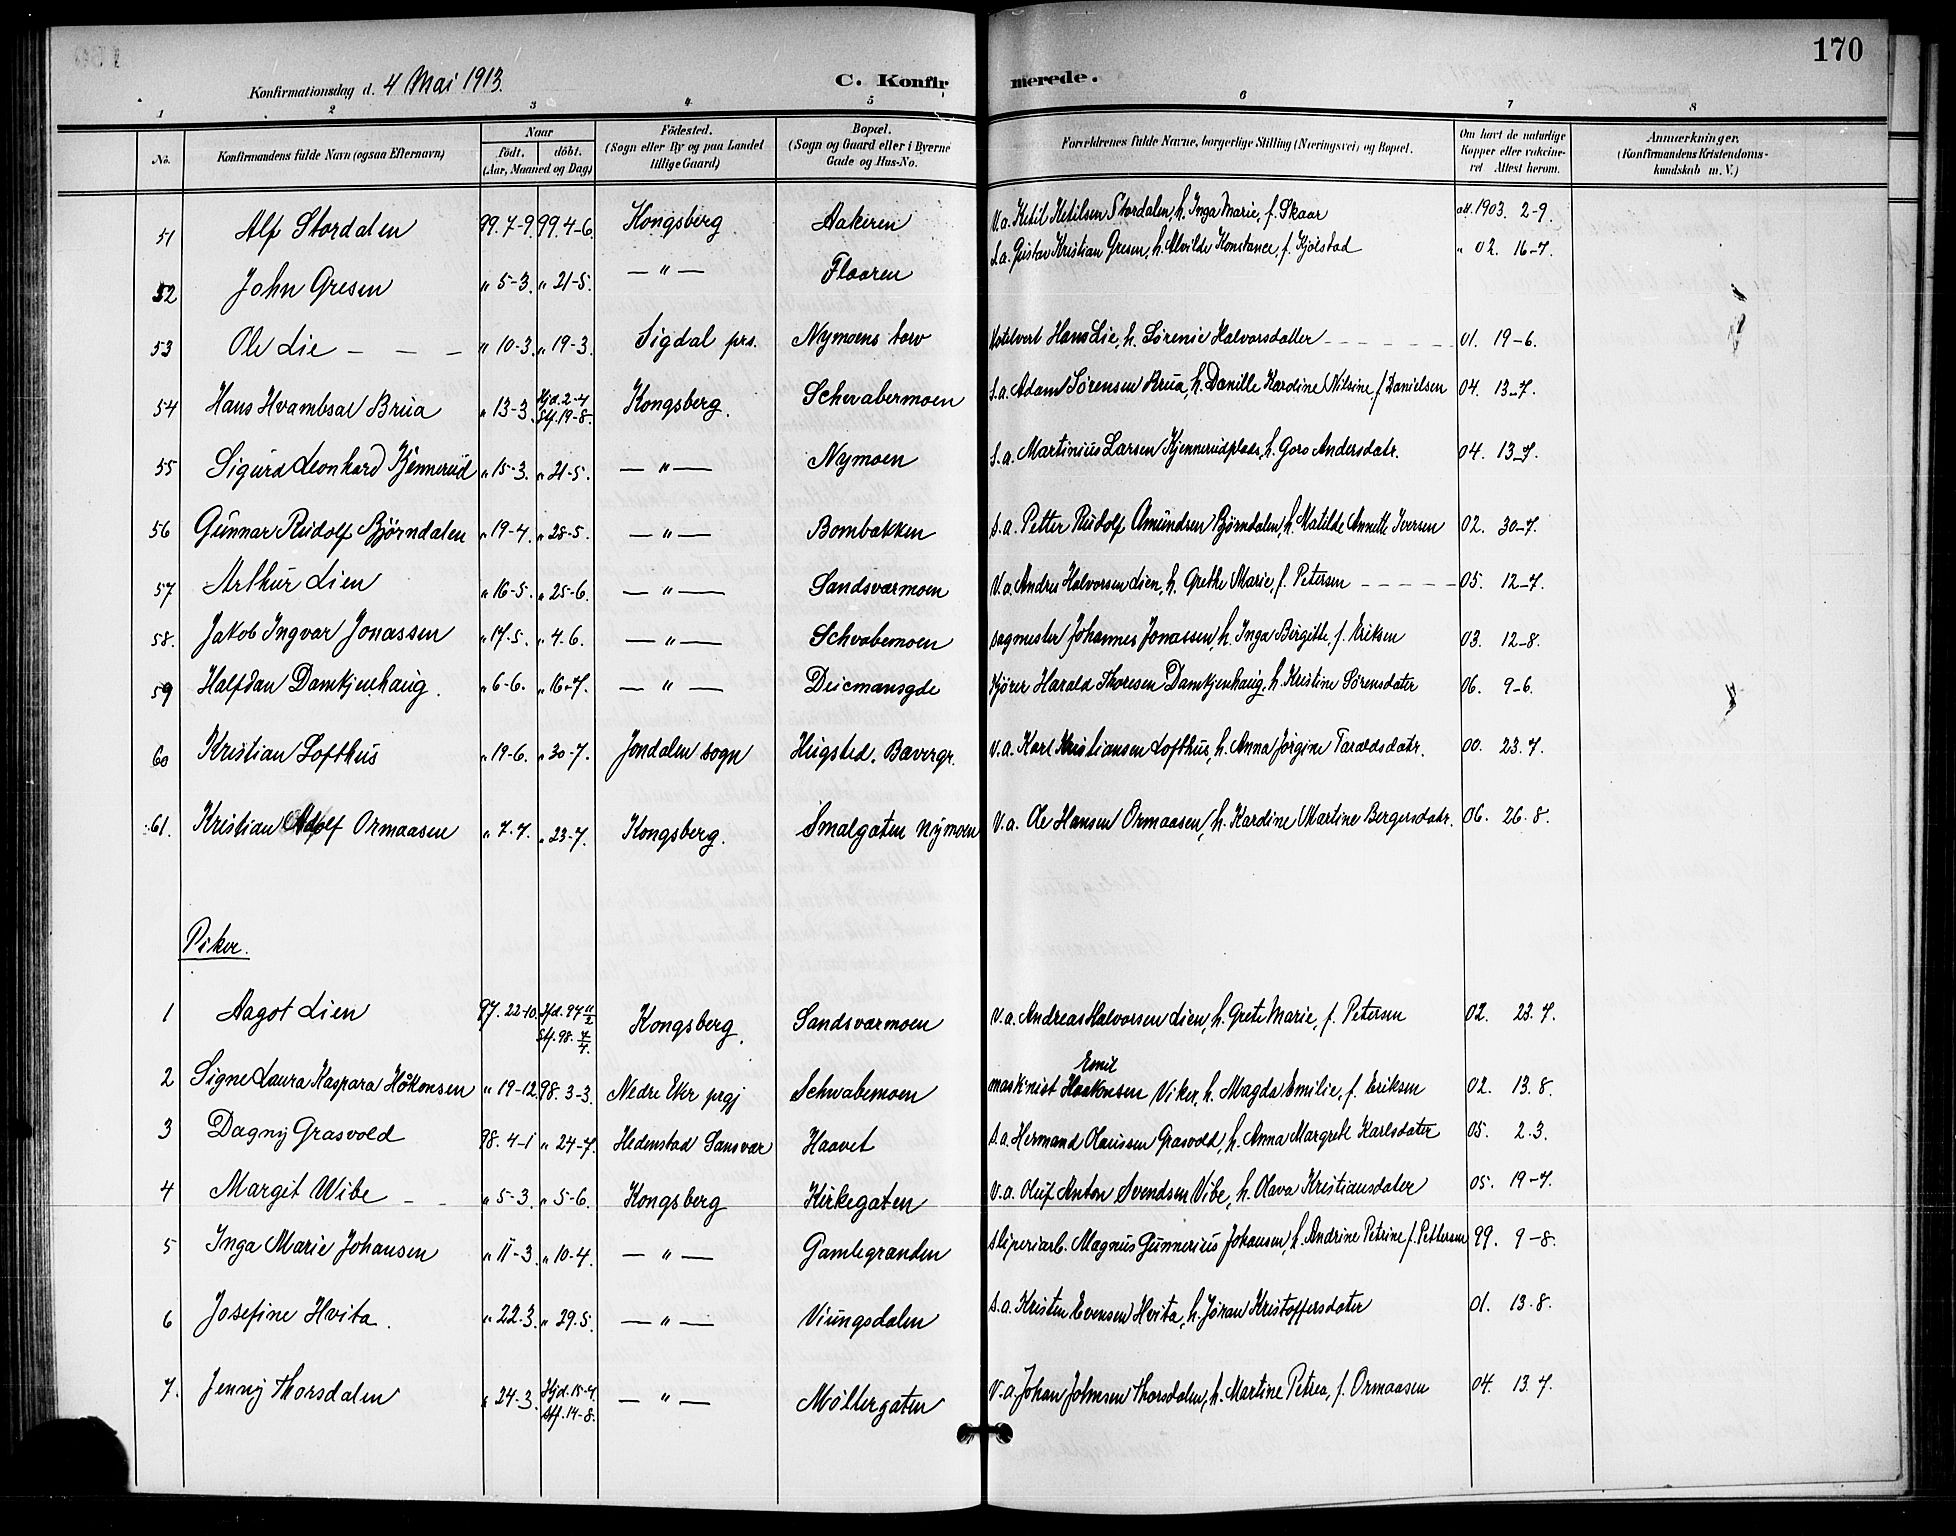 170
Konfirmationsdag d. 4 Mai 1913.
C. Konfirmerede.
1 2 3 4 5 6 7 8
No. Konfirmandens fulde Navn (ogsaa Efternavn) Naar födt. döbt. (Aar, Maaned og Dag) Födested. (Sogn eller By og paa Landet tillige Gaard) Bopæl. (Sogn og Gaard eller i Byerne Gade og Hus-No. Forældrenes fulde Navne, borgerlige Stilling (Næringsvei) og Bopæl. Om havt de naturlige Kopper eller vaccineret Attest herom. Anmærkninger. (Konfirmandens Kristendomskundskab m. V.)
51 Alf Stordalen 99. 7-9. 99. 4-6. Kongsberg Aakeren V.a. Ketil Ketilsen Stordalen, h. Inga Marie, f. Skaar att. 1903. 2-9.
52 John Gresen " 5-3. " 21-5. — " — Flaaren S.a. Gustav Kristian Gresen, h. Alvilde Konstance, f. Kjølstad " 02. 16-7.
53 Ole Lie — — — " 10-3. " 19-3. Sigdal prs. Nymoens torv Hotelvert Hans Lie, h. Sørenie Halvorsdatter 01. 19-6.
54 Hans Hvambsal Brua " 13-3. Hjd. 2-4 Stf. 19-8. Kongsberg. Schwabermoen S.a. Adam Sørensen Brua, h. Danille Kardine Nilsine, f. Danielsen 04. 13-7.
55 Sigurd Leonhard Kjennerud " 15-3. " 21-5. — " — Nymoen S.a. Martinius Larsen Kjennerudplads, h. Goro Andersdatr. 04. 13-7.
56 Gunnar Rudolf Bjørndalen " 19-4. " 28-5. — " — Bombakken S.a. Petter Rudolf Amundsen Bjørndalen, h. Matilde Annette Iversen 02. 30-7.
57 Arthur Lien " 16-5. " 25-6. — " — Sandsværmoen V.a. Andres Halvorsen Lien, h. Grethe Marie, f. Petersen 05. 12-7.
58. Jakob Ingvar Jonassen " 17-5. " 4.6. — " — Schvabemoen Sagmester Johannes Jonassen, h. Inga Birgitte, f. Eriksen 03. 12-8.
59 Halfdan Damkjenhaug. " 6-6. " 16-7. — " — Deicmansgde Kjører Harald Thoresen Damkjenhaug, h. Kristine Sørensdater 06. 9-6.
60 Kristian Lofthus " 19-6. " 30-7. Jondalen sogn Hugsted. Bævergr. V.a. Karl Kristiansen Lofthus, h. Anna Jørgine Taraldsdatr. 00. 23.7.
61. Kristian Adolf Ormaasen " 7-7. " 23-7. Kongsberg. Smalgaten Nymoen V.a. Ole Hansen Ormaasen, h. Kardine Martine Bergersdatr. 06. 26.8.
Piker.
1 Aagot Lien 97. 22-10. Hjd. 97 11/2 Stf. 98. 7/4. Kongsberg. Sandsværmoen V.a. Andreas Halvorsen Lien, h. Grete Marie, f. Petersen 02. 23.7.
2 Signe Laura Kaspara Håkonsen " 19-12 98. 3-3. Nedre Eker prgj Schwabemoen maskinist Emil Haakonsen Viker, h. Magda Emilie, f. Eriksen 02. 13.8.
3 Dagny Grasvold 98. 4-1 " 24-7. Hedenstad Sansvær Haavet S.a. Hermand Olaussen Grasvold, h. Anna Margrete Karlsdater 05. 2.3.
4 Margit Wibe " 5-3. " 5-6. Kongsberg Kirkegaten V.a. Oluf Anton Svendsen Vibe, h. Olava Kristiansdater 05. 19-7.
5 Inga Marie Johansen " 11-3. " 10-4. — " — Gamlegrænden Sliperiarb. Magnus Gunnerius Johansen, h. Andrine Petrine f. Pettersen 99. 9-8.
6 Josefine Hvita. " 22.3. " 29.5. — " — Viungsdalen S.a. Kristen Evensen Hvita, h. Jøran Kristoffersdater 01. 13.8.
7. Jenny Thorsdalen " 24-3. Hjd. 15-4 Stf. 14-8. — " — Møllergaten V.a. Johan Johnsen Thorsdalen, h. Martine Petrea, f. Ormaasen 04. 13.7.